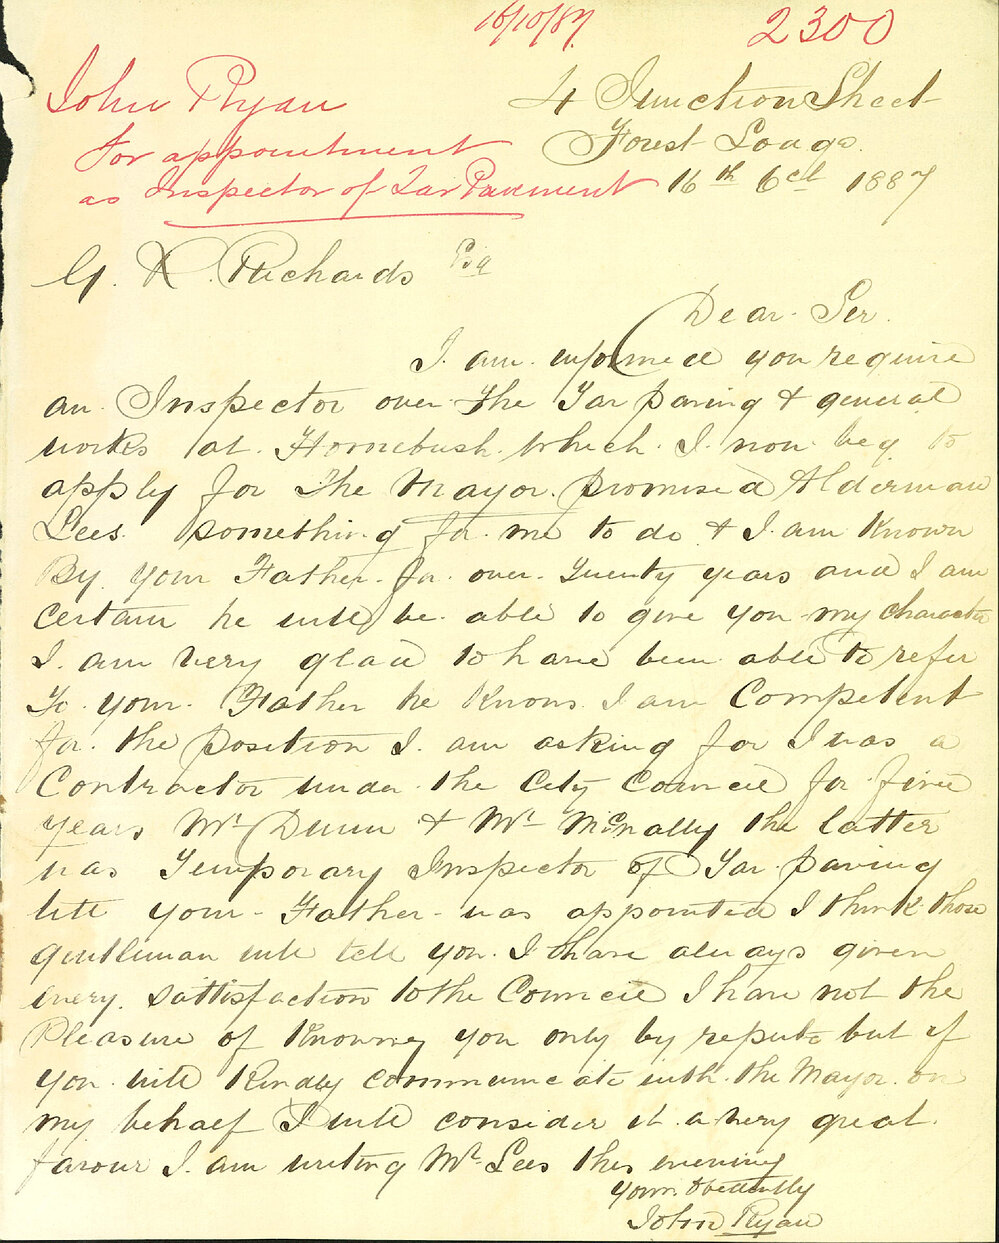 16/10/87.
2300
John Ryan
for appointment
as Inspector of Tar Pavement
4 Junction Street
Forest Lodge.
16th Oct 1887
G. R. Richards Esq
Dear Sir.
I am informed you require
an Inspector over the Tar paving & general
works at Homebush. Which I now beg to
apply for The Mayor promised Alderman
Lees something for me to do & I am Known
By your Father for over Twenty years and I am
certain he will be able to give you my character
I am very glad to have been able to refer
To your Father he Knows I am Competent
for the position I am asking for I was a
Contractor under the City Council for five
years Mr Dunn & Mr McNally the latter
was Temporary Inspector of Tar paving
till your Father was appointed I think those
gentleman will tell you I have always given
every sattisfaction to the Council I have not the
Pleasure of Knowing you only by repute but if
you will Kindly communicate with the Mayor on
my behalf I will consider it a very great
favour I am writing Mr Lees this evening
Yours obediently
John Ryan